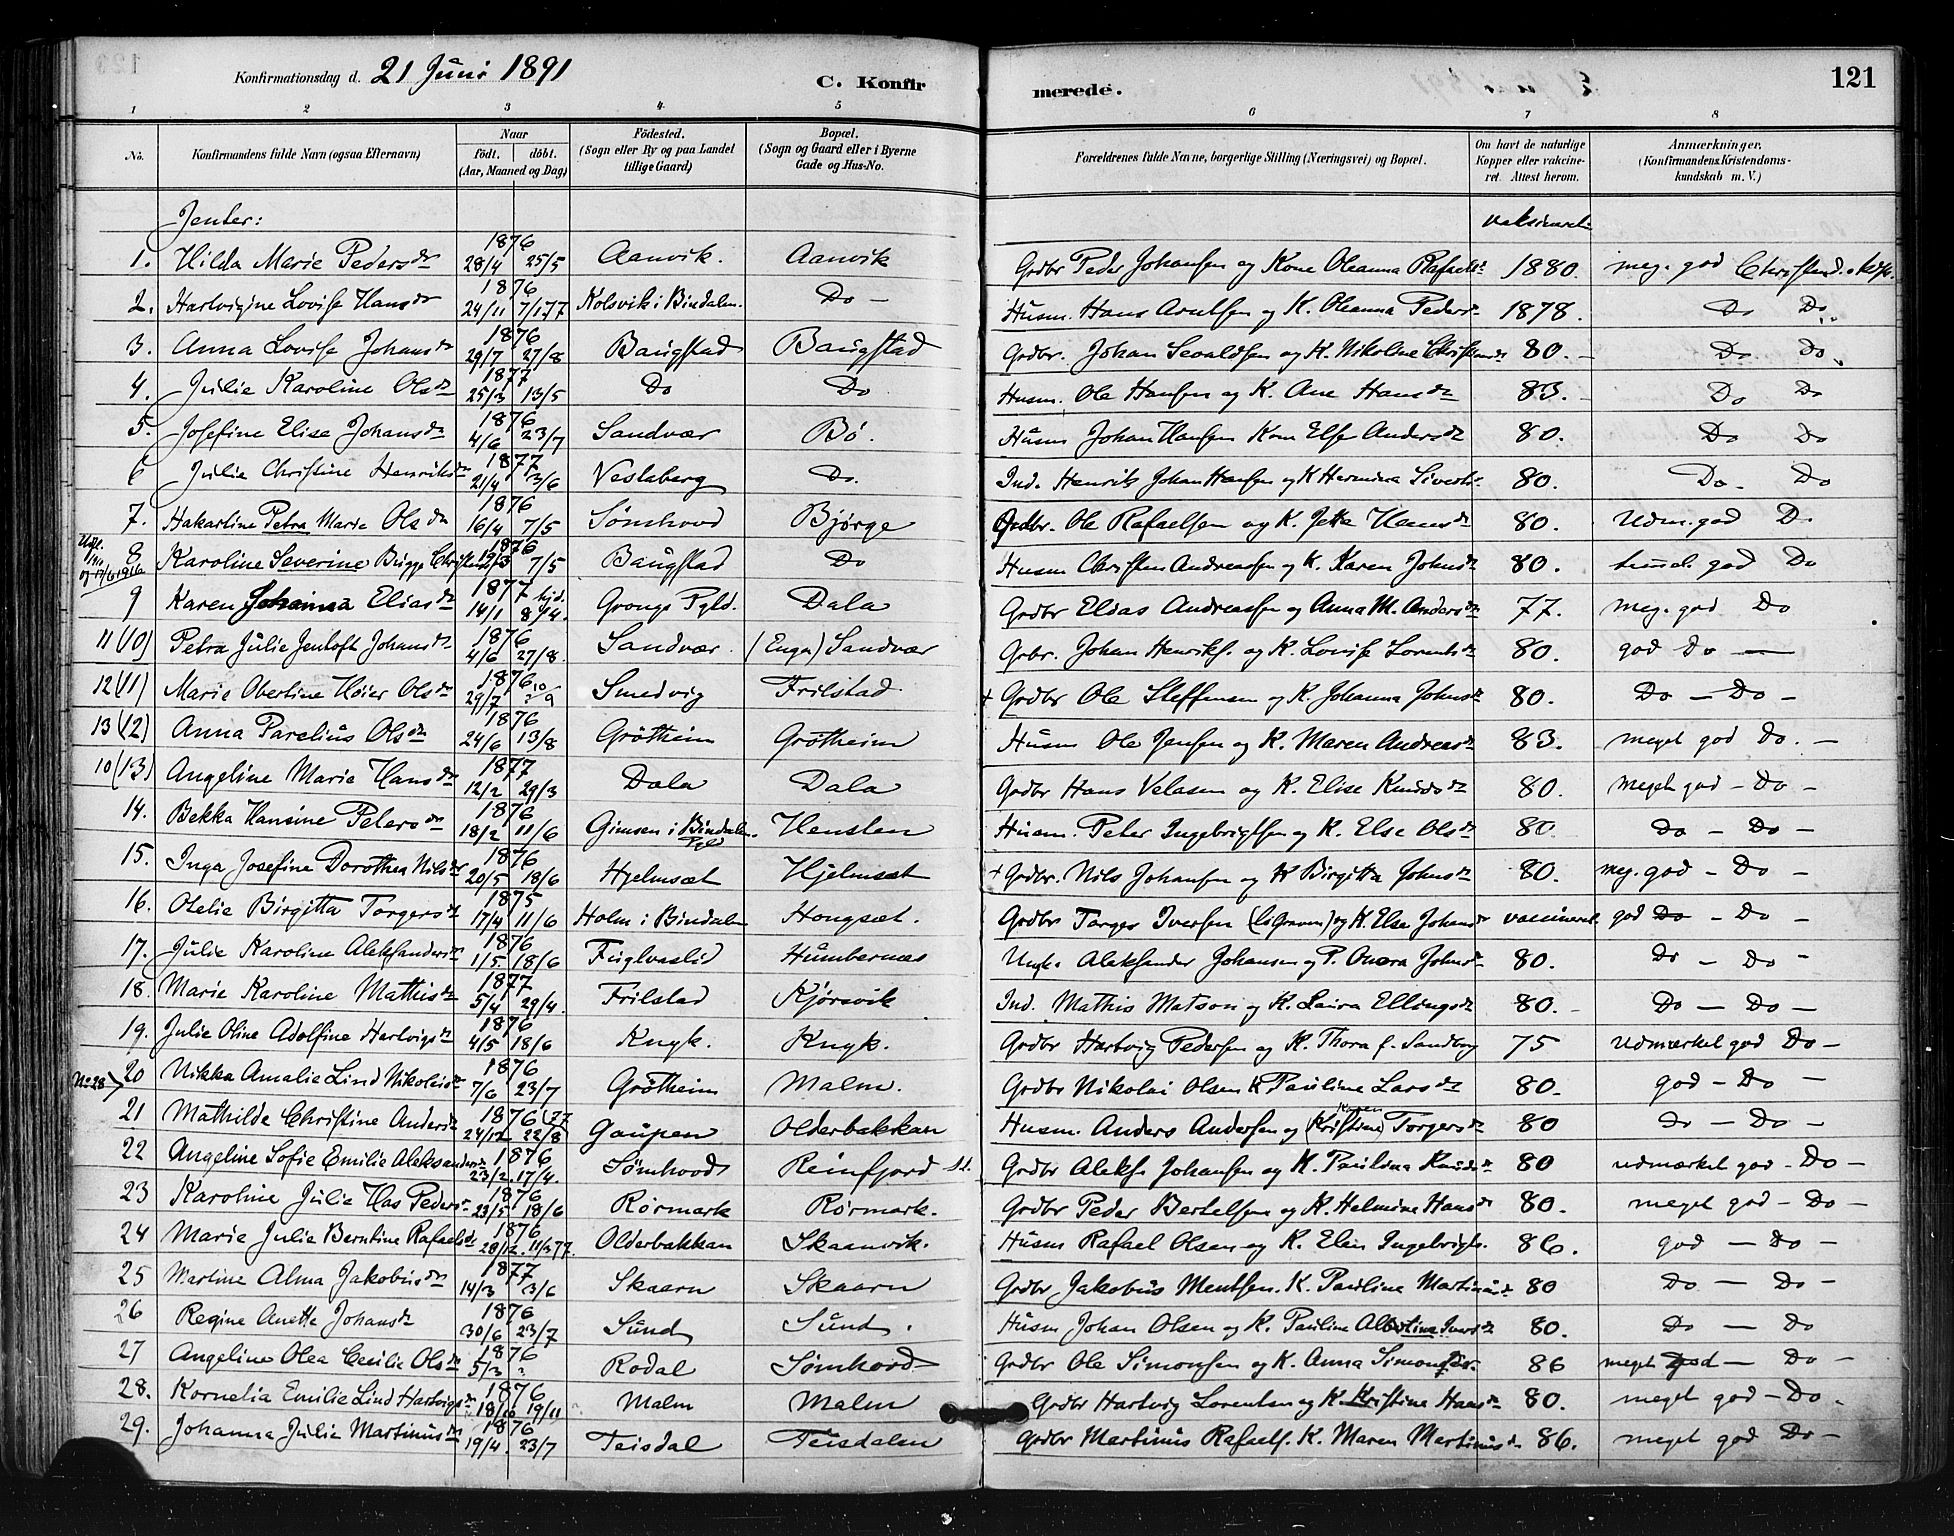 Konfirmationsdag d. 21 Juni 1891 C. Konfirmerede. 121
1 2 3 4 5 6 7 8
No. Konfirmandens fulde Navn (ogsaa Efternavn) Naar födt. döbt. (Aar, Maaned og Dag) Födested. (Sogn eller By og paa Landet tillige Gaard) Bopæl. (Sogn og Gaard eller i Byerne Gade og Hus-No. Forældrenes fulde Navne, borgerlige Stilling (Næringsvei) og Bopæl. Om havt de naturlige Kopper eller vakcineret. Attest herom. Anmærkninger. (Konfirmandens Kristendomskundskab m. V.)
Jenter:
1. Hilda Marie Pedersdr 1876 28/4 25/5 Aanvik. Aanvik Grdbr Peder Johansen og Kone Oleanna Rafaelsdr 1880. meg. god
2. Hartvigine Lovise Hansdr 1876 24/11 7/1 77 Kolsvik i Bindalen. Do Husm. Hans Arntsen og K. Oleanna Pedersdr 1878. Do Do
3. Anna Lovise Johansdr 1876 29/7 27/8 Baugstad Baugstad Grdbr. Johan Sevaldsen og K. Nikoline 80. Do Do
4. Julie Karoline Olsdr 1877 25/3 13/5 Do Do Husm. Ole Hansen og K. Ane Hansdr 83. Do Do
5. Josefine Elise Johansdr 1876 4/6 23/7 Sandvær Bø. Husm Johan Hansen Kone Else Andersdr 80. Do Do
6 Julie Christine Henriksdr 1877 21/4 3/6 Veslaberg Do. Ind. Henrik Johan Hansen og K 80. Do. Do
7. Hakartine Petra Marie Olsdr 1876 16/4 7/5 Sømhovd Bjørge Grdbr. Ole Rafaelsen og K. Jetta Hansdr 80. Udm. god Do
8 Karoline Severine Bugge 1876 7/5 Baugstad Do Husm Christen Andreassen og K. Karen Johnsdr 80. god Do
9 Karen Johanna Eliasdr 1877 14/1 8/4. Grongs Pgld. Dala Grdbr Elias Andreassen og Anna M. Andersdr 77. meg. god Do
11 (10) Petra Julie Jentoft Johansdr 1876 4/6 27/8. Sandvær. (Enga) Sandvær Grbr. Johan Henriks. og K. Lovise Lorentsdr 80. god Do —
12 (11) Marie Obertine Høier Olsdr 1876 29/7 Smedvig Frilstad + Grdbr Ole Steffensen og K. Johanna Johnsdr 80. Do — Do —
13 (12) Anna Parelius Olsdr 1876 24/6 13/8 Grøtheim Grøtheim Husm Ole Jensen og K. Maren Andreasdr 83. meget god Do. —
10 (13) Angeline Marie Hansdr 1877 12/2 29/3 Dala Dala Grdbr Hans Velasen og K. Elise Knudsdr 80. meget god — Do —
14. Bekka Hansine Petersdr 1876 18/2 11/6 Gimsen i Bindalen. Pgld Hensten Husm. Peter Ingebrigtsen og K. Else Olsdr 80. Do — Do —
15. Inga Josefine Dorothea Nilsdr 1876 20/5 18/6 Hjelmsæt Hjelmsæt + Grdbr. Nils Johansen og K Birgitta Johnsdr 80. meg. god — Do —
16. Otelie Birgitta Torgersdr 1875 17/4 11/6 Holm i Bindalen Hongsæt. Grdbr Torger Iversen og K. Else Johansdr vaccineret god Do — Do —
17. Julie Karoline Aleksandersdr 1876 1/5 18/6 Fuglvaslid Humbernes Ungk. Aleksander Johansen og P. 80. Do — Do —
18. Marie Karoline Mathisdr 1877 5/4 29/4. Frilstad Kjørsvik Ind. Mathis Matson og K. Laira Ellingsdr 80. Do — Do —
19. Julie Oline Adolfine Hartvigsdr 1876 4/5 18/6 Knyk. Knyk. Grdbr Hartvig Pedersen og K. Thora f. Sandberg 75 Udmærket god Do —
No 28 20 Nikka Amalie Lind Nikolaisdr 1876 7/6 23/7 Grøtheim Malm. Grdbr Nikolai Olsen K Pauline Larsdr 80. god — Do —
21 Mathilde Christine Andersdr 1876 (77 24/12 22/8 Gaupen Olderbakkan Husm. Anders Andersen og (Kristine) Karen Torgersdr 80 Do — Do —
22 Angeline Sofie Emilie Aleksandersdr 1876 23/2. 17/4. Sømhovd Reinfjord Grdbr Aleks. Johansen og K. Paulina Knudsdr 80 udmærket god — Do —
23 Karoline Julie Has Pedersdr 1876 23/5 18/6 Rørmark Rørmark. Grdbr Peder Bertelsen og K. Helmine Hansdr 80. meget god — Do —
24 Marie Julie Berntine Rafaelsdr 1876 28/12. Olderbakkan Skaanvik. Husm Rafael Olsen og K. Elen Ingebrigts. 86. god — Do —
25 Martine Alma Jakobusdr 1877 14/3 3/6 Skaarn Skaarn Grdbr Jakobus Mentsen. K. Pauline Martinusdr 80 Do — Do —
26 Regine Anetta Johansdr 1876 30/6 23/7 Sund Sund. Husm Johan Olsen og K. Pauline Albertine Iversdr 80. Do — Do
27 Angeline Olea Cecilie Olsdr 1876 5/3 ? Rodal Sømhovd Grdbr Ole Simonsen og K. Anna Simonsdr. 86 meget god — Do —
28. Kornelia Emilie Lind Hartvigsdr 1876 18/10 19/11 Malm Malm Grdbr Hartvig Lorentsen og K. Kristine Hansdr 80. meget god — Do.
29. Johanna Julie Martinusdr 1876 19/4. 23/7 Teisdal Teisdalen Grdbr Martinus Rafaels. K. Maren Martinusdr 86. meget god Do —